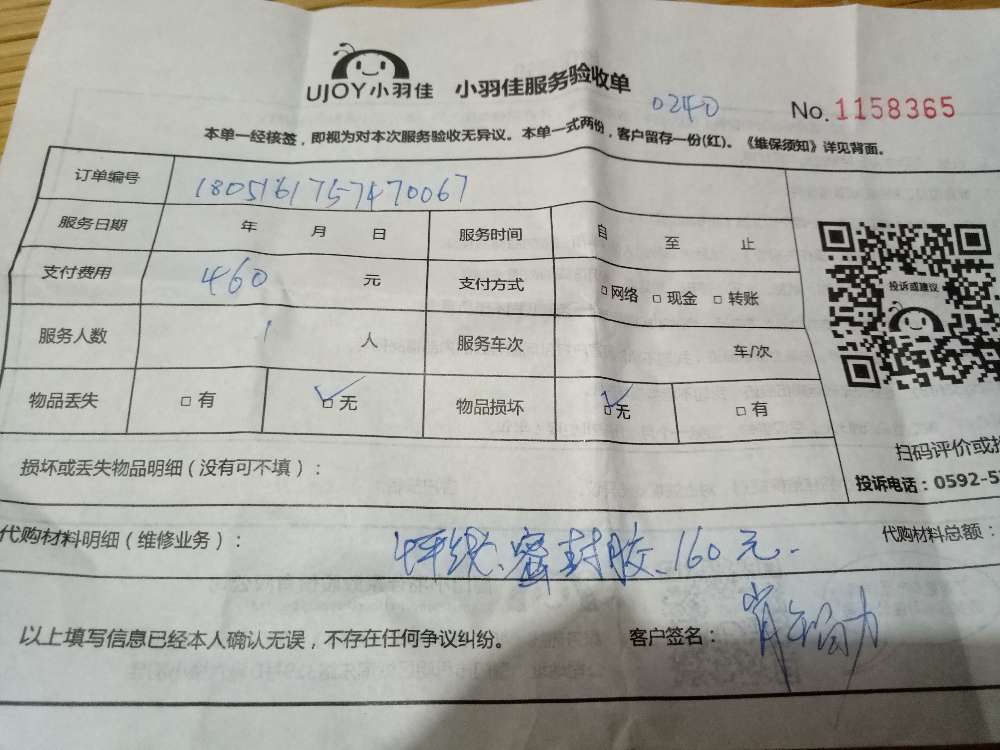 UJOY小羽佳 小羽佳服务验收单
0240
No.1158365
本单一经核签，即视为对本次服务验收无异议。本单一式两份，客户留存一份(红)。《维保须知》详见背面。
订单编号 1805161757470067
服务日期 年 月 日 服务时间 自 至 止
支付费用 460 元 支付方式 □网络 □现金 □转账
投诉或建议
服务人数 1 人 服务车次 车/次
物品丢失 □有 □无 物品损坏 □无 □有
扫码评价或
损坏或丢失物品明细（没有可不填）：
投诉电话：0592-5
代购材料明细（维修业务）： 密封胶、160元. 代购材料总额：
以上填写信息已经本人确认无误，不存在任何争议纠纷。 客户签名：